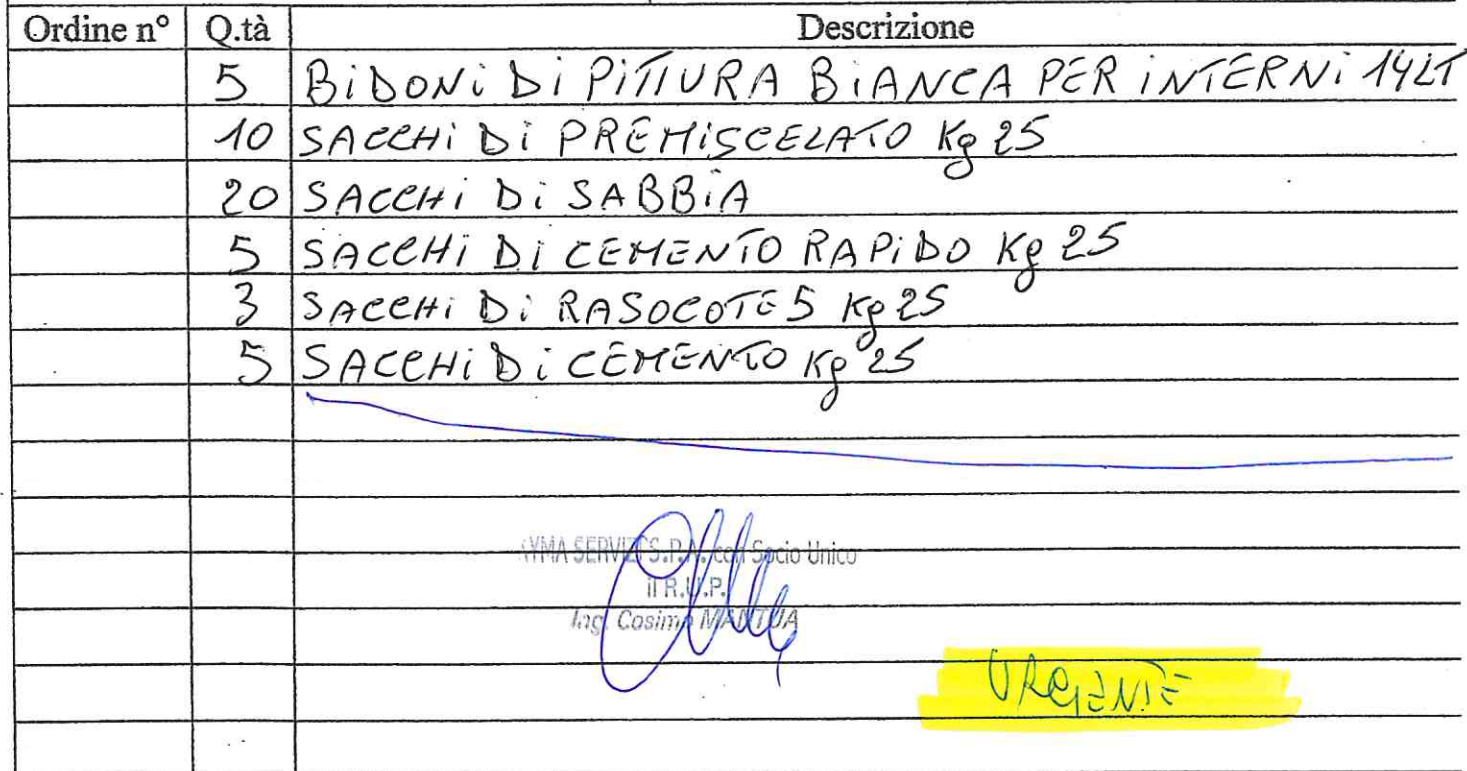 Ordine n° Q.tà Descrizione
5 BiDONi Di PiTTURA BiANCA PER iNTERNi 14LT
10 SACCHi Di PREMiSCELATO Kg 25
20 SACCHi Di SABBiA
5 SACCHi Di CEMENTO RAPiDO Kg 25
3 SACCHi Di RASOCOTE 5 Kg 25
5 SACCHi Di CEMENTO Kg 25
S.P.A. con Socio Unico
il R.U.P.
Ing. Cosimo MANTUA
URGENTE